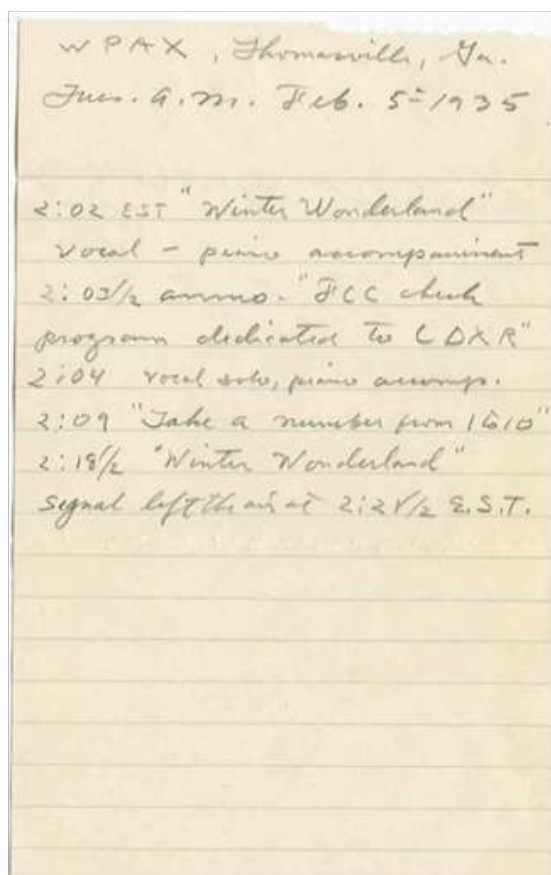 WPAX, Thomasville, Ga.
Tues. A.M. Feb. 5- 1935
2:02 EST "Winter Wonderland"
vocal - piano accompaniment
2:03 1/2 anno. "FCC check
program dedicated to CDXR"
2:04 vocal solo, piano accomp.
2:09 "Take a number from 1 to 10"
2:18 1/2 "Winter Wonderland"
Signal left the air at E.S.T.